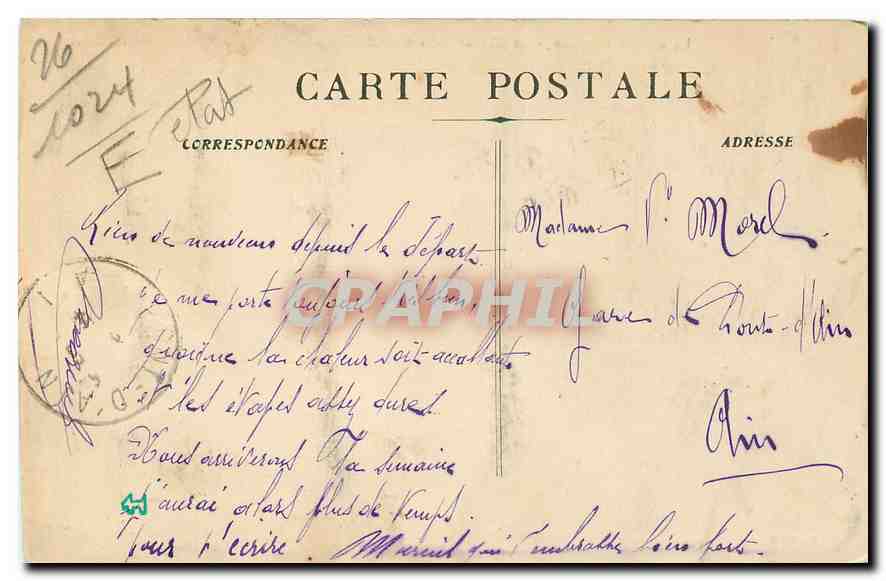 26
1024
E état
CARTE POSTALE
CORRESPONDANCE
ADRESSE
Rien de nouveau depuis le départ.
Je me porte toujours très bien,
quoique la chaleur soit accablante
et les étapes assez dures.
Nous arriverons la semaine
J'aurai alors plus de temps
pour t'écrire qui t'embrasse bien fort.
Madame Vᵉ Morel
Gare de Pont-d'Ain
Ain
CPAPHIL